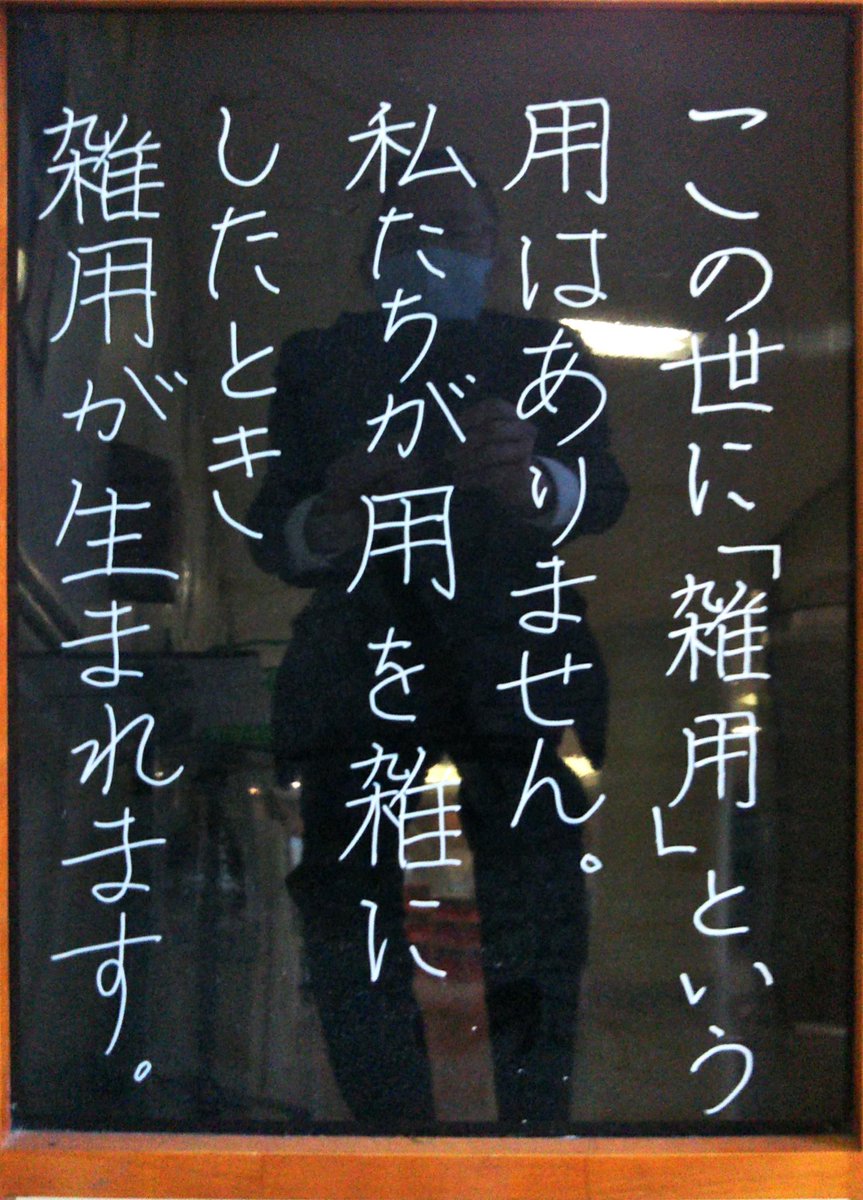 この世に「雑用」という
用はありません。
私たちが用を雑に
したとき
雑用が生まれます。